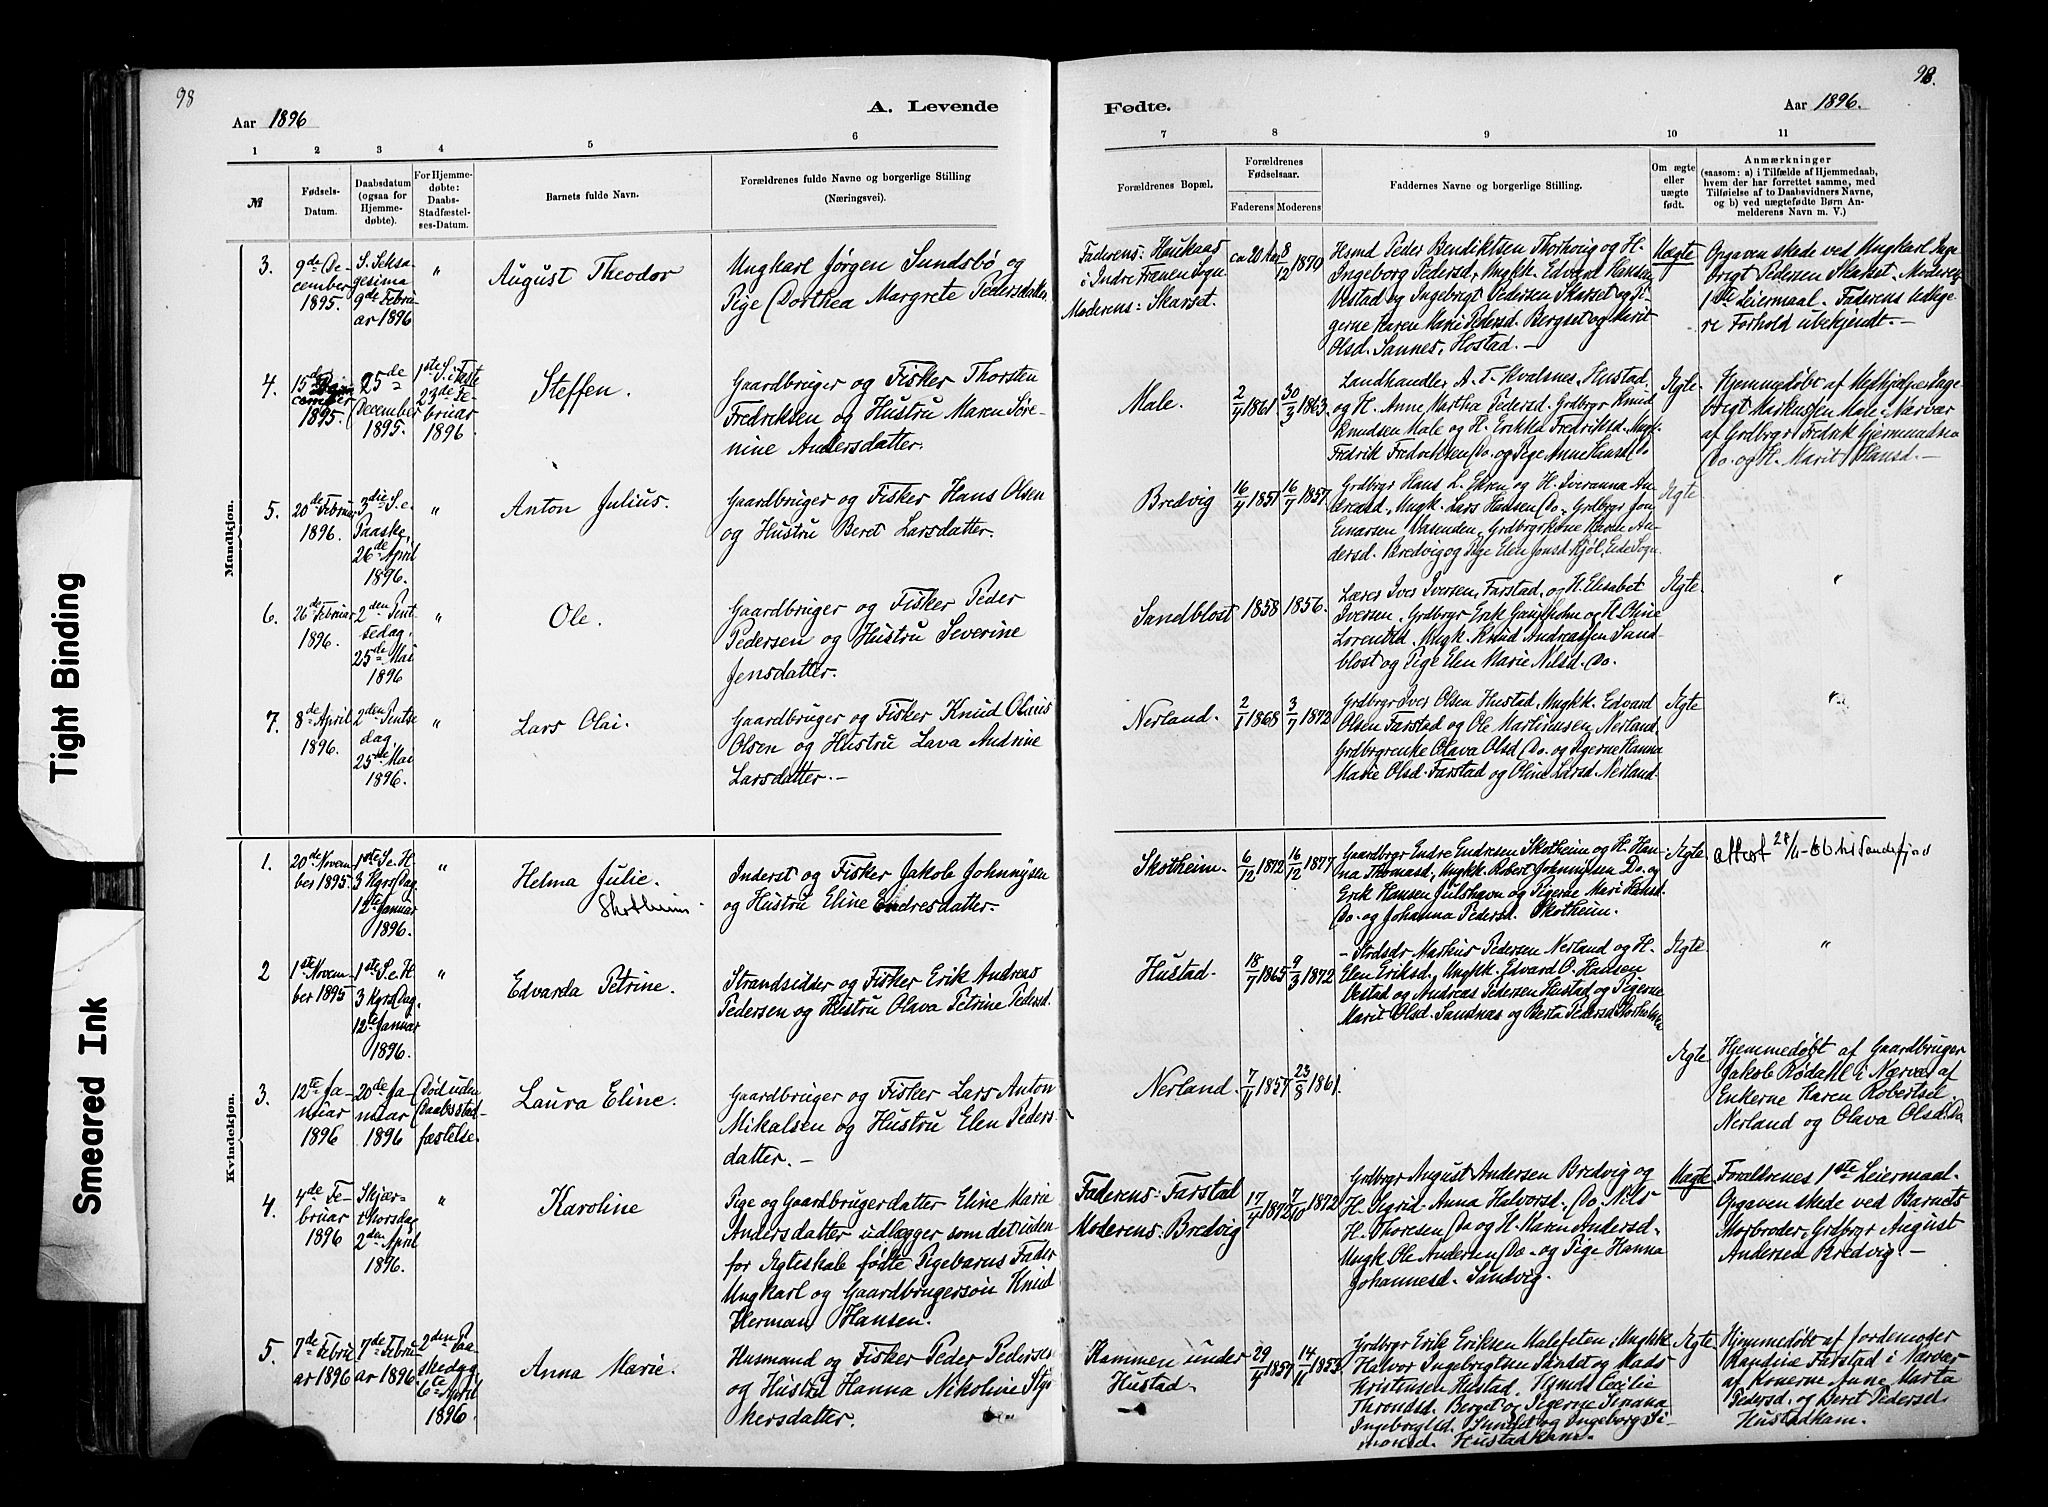 98
98.
A. Levende
Fødte.
Aar 1896
Aar 1896.
1 2 3 4 5 6 7 8 9 10 11
№
Fødsels-
Datum.
Daabsdatum
(ogsaa for
Hjemme-
døbte).
For Hjemme-
døbte:
Daabs-
Stadfæstel-
ses-Datum.
Barnets fulde Navn.
Forældrenes fulde Navne og borgerlige Stilling
(Næringsvei).
Forældrenes Bopæl.
Forældrenes
Fødselsaar.
Faderens Moderens
Faddernes Navne og borgerlige Stilling.
Om ægte
eller
uægte
født.
Anmærkninger
(saasom: a) i Tilfælde af Hjemmedaab,
hvem der har forrettet samme, med
Tilføielse af to Daabsvidners Navne,
og b) ved uægtefødte Børn An-
melderens Navn m. V.)
Mandkjøn.
3.
9de De-
cember
1895.
S. Seksa-
gesima
9de Febru-
ar 1896
"
August Theodor
Ungkarl Jørgen Sundsbø og
Pige Dorthea Margrete Pedersdatter
Faderens: Haukaas
i Indre Frænen Sogn
Moderens: Skarset.
ca 20 Aar
8/12 1870
Hsmd Peder Bendiktsen Thorhovig og H.
Ingeborg Pedersd., Ungkk. Edvard Hansen
Vestad og Ingebrigt Pedersen Skarset og Pi-
gerne Karen Marie Pedersd. Bergset og Marit
Olsd. Sannes, Hostad. —
Uægte
Opgaven skede ved Ungkarl Inge-
brigt Pedersen Skarset. Moderens
1ste Leiermaal. Faderens tidlige-
re Forhold ubekjendt. —
4.
15de De-
cember
1895.
25de
December
1895.
1ste S. i Faste
23de Fe-
bruar
1896
Steffen.
Gaardbruger og Fisker Thorsten
Fredriksen og Hustru Maren Søre-
nine Andersdatter.
Male.
2/4 1861
30/3 1863
Landhandler A. T. Kvalsnes, Hustad,
og H. Anne Martha Pedersd. Grdbrgr Knud
Knudsen Male og H. Erikka Fredriksd. Ungk.
Fredrik Fredriksen Do. og Pige Anne Do
Ægte
Hjemmedøbt af Medhjælper Inge-
brigt Markussen Male i Nærvær
af Grdbrgr Fredrik Gjermundsen
Do. og H. Marit Hansd. —
5.
20de Februar
1896.
3die S. e.
Paaske,
26de April
1896.
"
Anton Julius.
Gaardbruger og Fisker Hans Olsen
og Hustru Beret Larsdatter.
Bredvig
16/4 1851
16/7 1857
Grdbrgr Hans L. og H. Iveranna An-
dreasd., Ungk. Lars Hansen Do., Grdbrgr Jon
Einarsen Vasenden, Grdbrgrkone Karen An-
dersd. Bredvig og Pige Elen Jonsd. Kjøl, Eide Sogn.
Ægte
6.
26de Februar
1896.
2den Pent-
sedag,
25de Mai
1896
"
Ole.
Gaardbruger og Fisker Peder
Pedersen og Hustru Severine
Jensdatter.
Sandblost
1858
1856.
Lærer Iver Iversen, Farstad, og H. Elisabet
Iversen, Grdbrgr Erik og H. Olina
Lorentsd. Ungk. Knud Andreassen Sand-
blost og Pige Elen Marie Nilsd. Do.
Ægte.
"
7.
8de April
1896.
2den Pentse
dag,
25de Mai
1896.
"
Lars Olai.
Gaardbruger og Fisker Knud Olaus
Olsen og Hustru Lava Andrine
Larsdatter. —
Nerland.
2/1 1868
3/7 1872
Grdbrgr Iver Olsen Hustad, Ungkk. Edvard
Olsen Farstad og Ole Martinusen Nerland,
Grdbrgrenke Olava Olsd. Do. og Pigerne Hanna
Marie Olsd. Farstad og Oline Larsd. Nerland.
Ægte
"
Kvindekjøn.
1.
20de Novem-
ber 1895.
1ste S. e. H.
3 Kgrs Dag
12te Januar
1896.
"
Helma Julie.
Skotheim
Inderst og Fisker Jakob Johnnysen
og Hustru Eline Endresdatter.
Skotheim.
6/12 1872
16/12 1877
Gaardbrgr Endre Endresen Skotheim og H. Han-
na Thomasd., Ungkk. Robert Johnnysen Do. og
Erik Hansen Julshavn og Pigerne Mari Hansd.
Do. og Johanna Pedersd. Skotheim.
Ægte
attest 28/11-66 til Sandefjord
2
1ste Novem-
ber 1895
1ste S. e. H.
3 Kgrs Dag.
12te Januar
1896.
"
Edvarda Petrine.
Strandsidder og Fisker Erik Andreas
Pedersen og Hustru Olava Petrine Pedersd.
Hustad.
18/7 1865
9/3 1872
Strdsdr Markus Pedersen Nerland og H.
Elen Eriksd., Ungkk. Edvard O. Hansen
Vestad og Andreas Pedersen Hustad og Pigerne
Marit Olsd. Sandnæs og Berta Pedersd.
Ægte
"
3.
12te Ja-
nuar
1896
20de Ja-
nuar
1896
Død uden
Daabsstad-
fæstelse.
Laura Eline.
Gaardbruger og Fisker Lars Anton
Mikalsen og Hustru Elen Peders-
datter. —
Nerland.
7/4 1857
23/8 1861.
Ægte
Hjemmedøbt af Gaardbruger
Jakob Rødahl i Nærvær af
Enkerne Karen Robertsd.
Nerland og Olava Olsd. Do
4.
4de Fe-
bruar
1896
Skjær-
thorsdag
2den April
1896.
"
Karoline
Pige og Gaardbrugerdatter Eline Marie
Andersdatter udlægger som det uden-
for Ægteskab fødte Pigebarns Fader
Ungkarl og Gaardbrugersøn Knud
Herman Hansen.
Faderens: Farstad
Moderens: Bredvig
17/4 1872
7/10 1872
Grdbrgr August Andersen Bredvig og
H. Sigrid Anna Halvorsd. Do, Nils
H. Thoresen Do og H. Maren Andersd.
Ungk Ole Andersen Do — og Pige Hanna
Johannesd. Sandvig.
Uægte
Forældrenes 1ste Leiermaal.
Opgaven skede ved Barnets
Morbroder, Grdbrgr August
Andersen Bredvig. —
5.
7de Febru-
ar 1896
7de Febru-
ar 1896
2den Paa-
skedag
6te April
1896
Anna Marie.
Husmand og Fisker Peder Pedersen
og Hustru Hanna Nikoline Styr-
kersdatter.
Hammen under
Hustad.
29/4 1857
14/11 1853
Grdbrgr Erik Eriksen Malefeten, Ungkk.
Halvor Ingebrigtsen Sundet og Mads
Kristensen Hustad, Cecilie
Throndsd. Berget og Pigerne
Ingebrigtsd. Sundet og Ingeborg Si-
monsd. Hustadham.
Ægte.
Hjemmedøbt af Jordemoder
Randine Farstad i Nærvær
af Konerne Anne Marta
Pedersd. og Beret Pedersd.
Hustadham.
Tight Binding
Smeared Ink